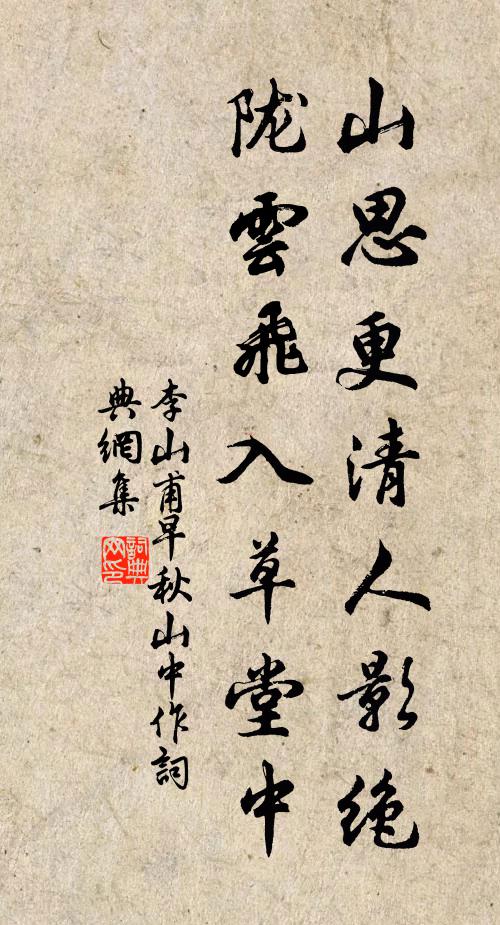 山思更清人影绝
陇雲飛入草堂中
李山甫早秋山中作詞
典網集
詞典
网印